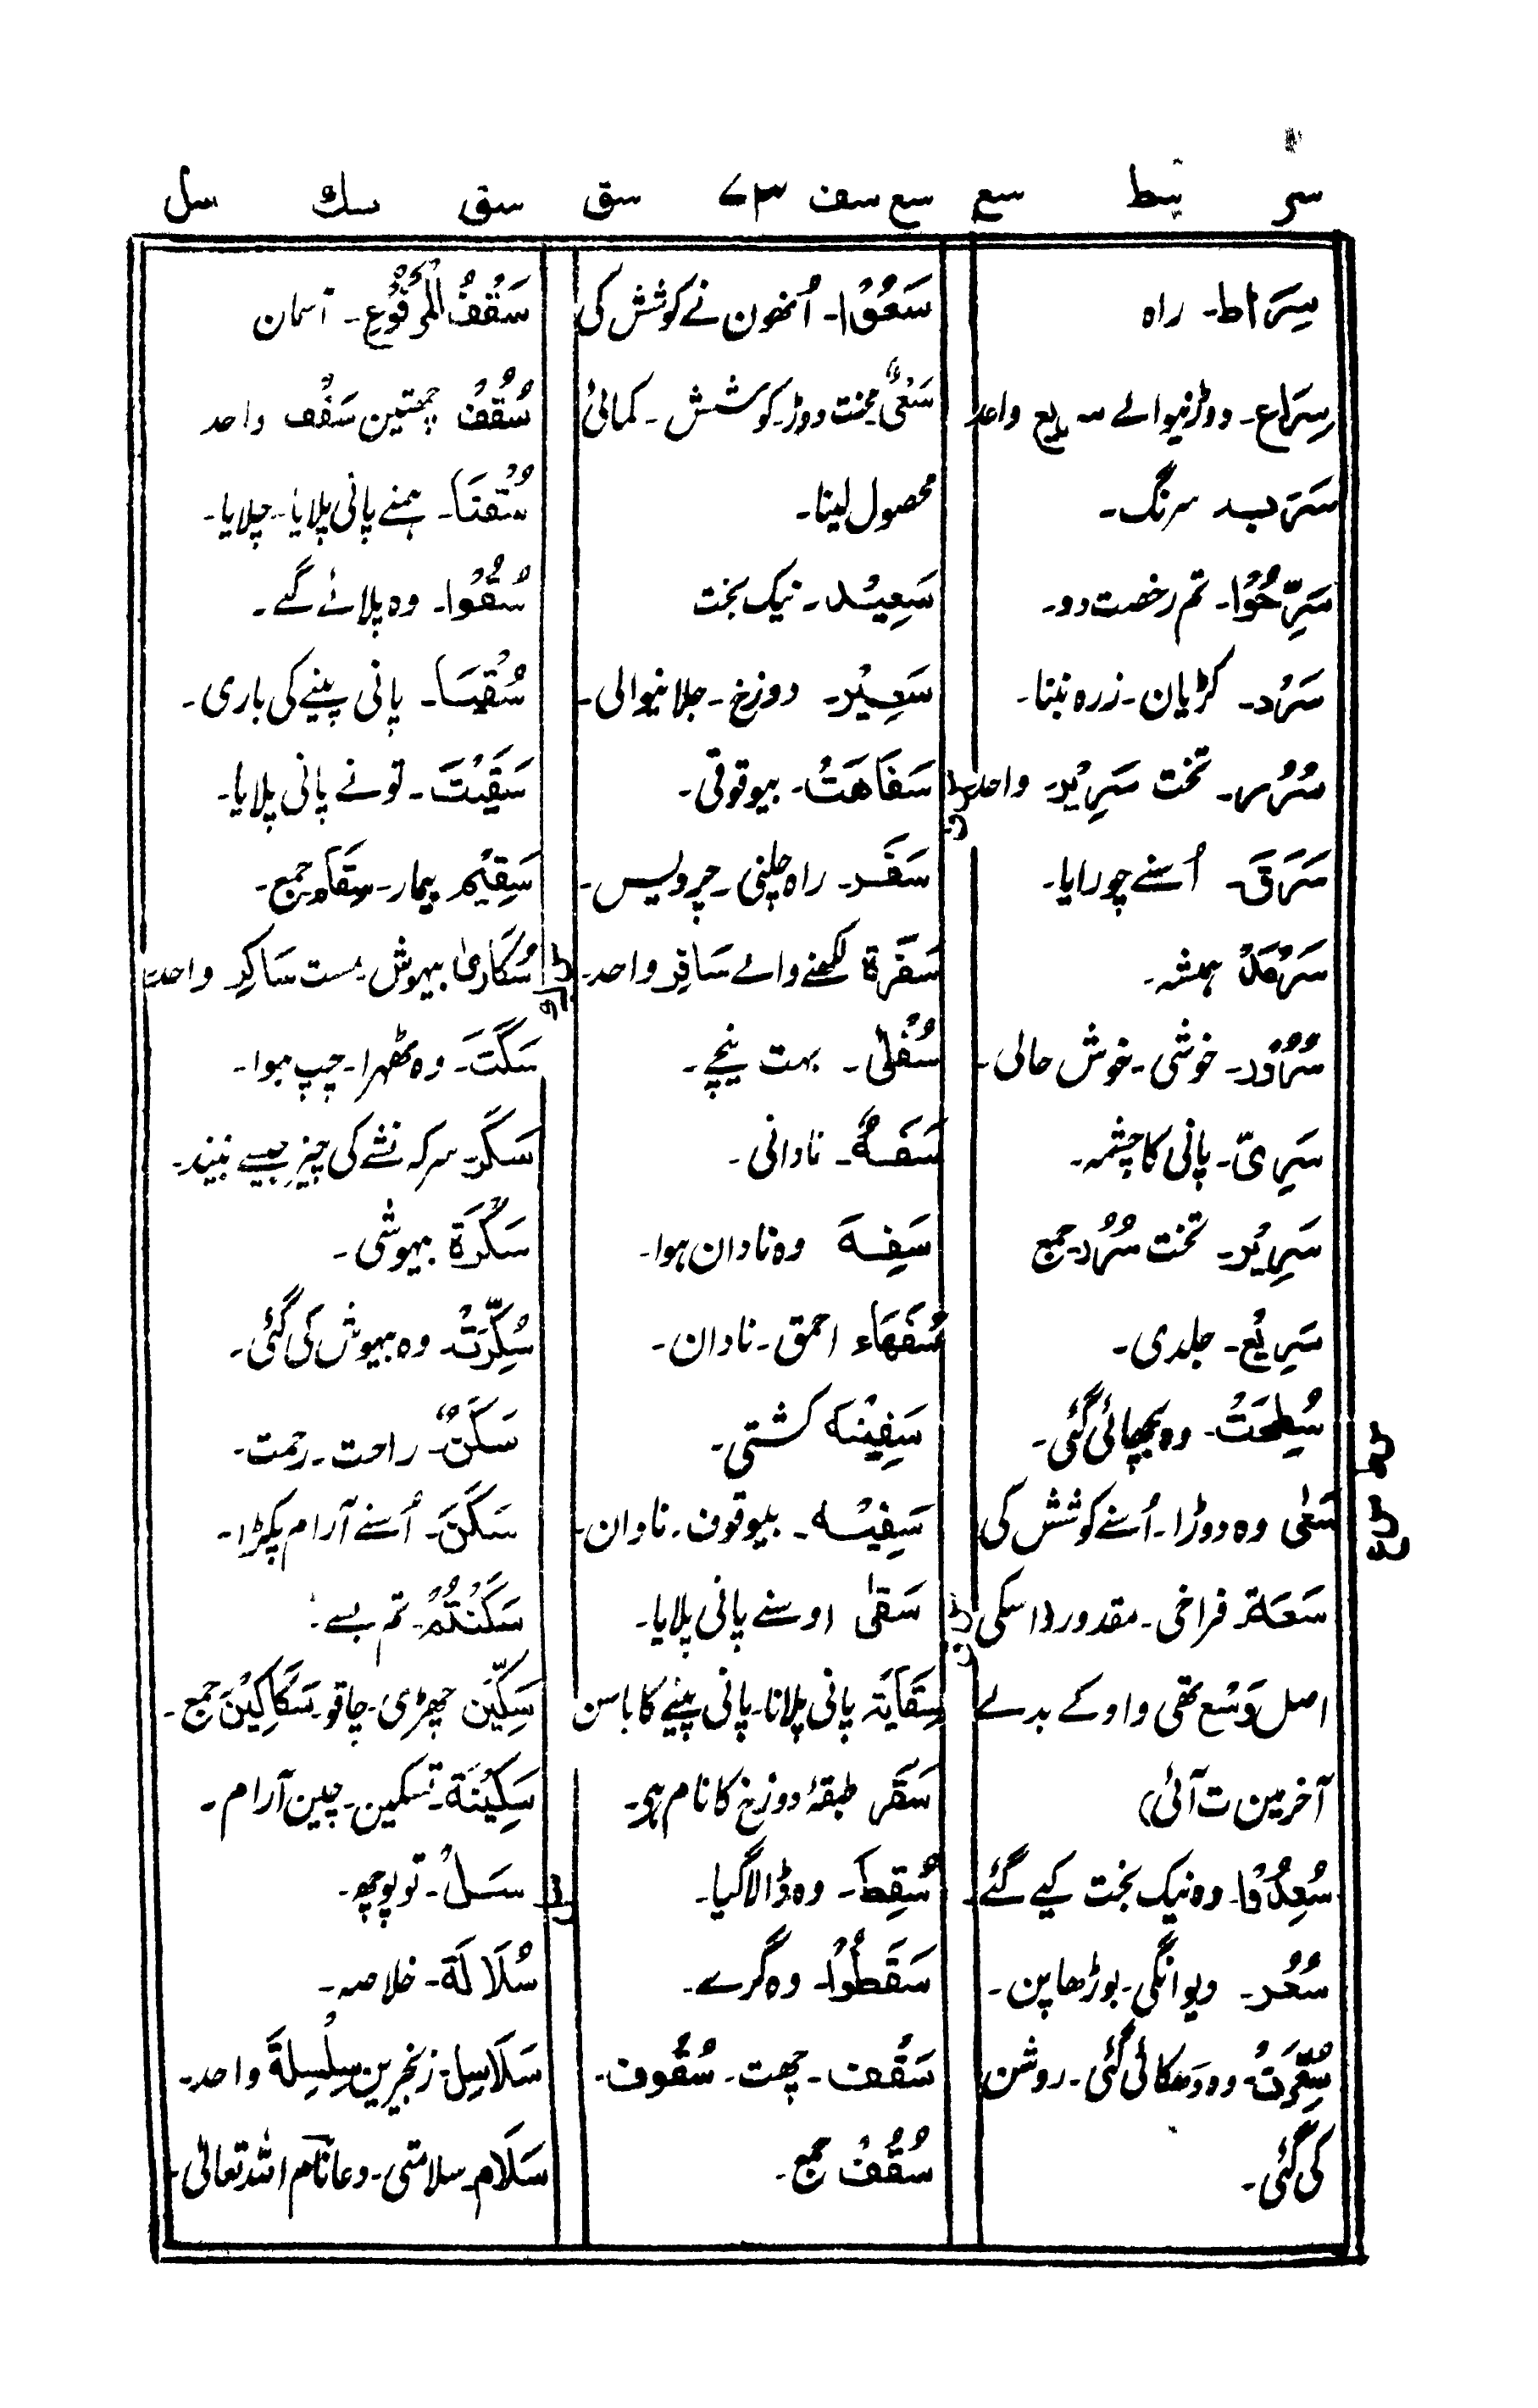 سر سط سع سع سف ۷۳ سق سق سك سل
سِرَاط۔ راہ
سِرَاع۔ دوڑنیوالے سریع واحد
سَرَب۔ سرنگ۔
سَرِّحُوْا۔ تم رخصت دو۔
سَرْد۔ کڑیان۔ زرہ بننا۔
سُرُر۔ تخت سَرِیْر۔ واحد
سَرَقَ۔ اُسنے چورایا۔
سَرْمَدْ ہمشہ۔
سُرُوْر۔ خوشی۔ خوش حالی۔
سَرِیّ۔ پانی کا چشمہ۔
سَرِیْر۔ تخت سُرُر۔ جمع
سَرِیْع۔ جلدی۔
سط
سُطِحَتْ۔ وہ بچھائی گئی۔
سع
سَعٰی وہ دوڑا۔ اُسنے کوشش کی
سَعَۃ۔ فراخی۔ مقدور (اسکی
اصل وَسْع تھی واو کے بدلے
آخر مین ت آئی)
سُعِدُوْا۔ وہ نیک بخت کیے گئے۔
سُعُر۔ دیوانگی۔ بوڑھاپن۔
سُعِّرَتْ۔ وہ دَھکائی گئی۔ روشن
کی گئی۔
سَعَوْا۔ اُنھون نے کوشش کی
سَعْیٌ محنت دوڑ۔ کوشش۔ کمائی
محصول لینا۔
سَعِیْد۔ نیک بخت
سَعِیْر۔ دوزخ۔ جلانیوالی۔
سف
سَفَاھَتْ۔ بیوقوفی۔
سَفَر۔ راہ چلنی۔ پردیس۔
سَفَرَة لکھنے والے سَافِر واحد۔
سُفْلٰی۔ بہت نیچے۔
سَفَهٌ۔ نادانی۔
سَفِهَ وہ نادان ہوا۔
سُفَهَاء احمق۔ نادان۔
سَفِیْنَه کشتی۔
سَفِیْه۔ بیوقوف۔ نادان۔
سق
سَقٰی اوسنے پانی پلایا۔
سِقَایَۃ پانی پلانا۔ پانی پینے کا باسن
سَقَر طبقۂ دوزخ کا نام ہی۔
سُقِطَ۔ وہ ڈالا گیا۔
سَقَطُوْا۔ وہ گرے۔
سَقْف۔ چھت۔ سُقُوف۔
سُقُفْ جمع۔
سَقْفُ الْمَرْفُوْعِ۔ آسمان
سُقُفْ چھتین سَقْف واحد
سُقْنَا۔ ہمنے پانی پلایا۔ چلایا۔
سُقُوْا۔ وہ پلائے گے۔
سُقْیَا۔ پانی پینے کی باری۔
سَقَیْتَ۔ تونے پانی پلایا۔
سَقِیْم بیمار۔ سِقَام جمع۔
سك
سُکَارٰی بیہوش مست سَاکِر واحد۔
سَکَتَ۔ وہ ٹھہرا۔ چپ ہوا۔
سَکَر۔ سرکہ نشے کی چیز جیسے نبیذ۔
سَکْرَة بیہوشی۔
سُکِّرَتْ۔ وہ بیہوش کی گئی۔
سَکَنٌ۔ راحت۔ رحمت۔
سَکَنَ۔ اُسنے آرام پکڑا۔
سَکَنْتُمْ۔ تم بسے۔
سِکِّیْن چھڑی۔ چاقو۔ سَکَاکِیْنَ جمع۔
سَکِیْنَة۔ تسکین۔ چین آرام۔
سل
سَلْ۔ تو پوچھ۔
سُلَالَة۔ خلاصہ۔
سَلَاسِل۔ زنجیرین سِلْسِلَة واحد۔
سَلَام۔ سلامتی۔ دعا نام اللہ تعالٰی۔